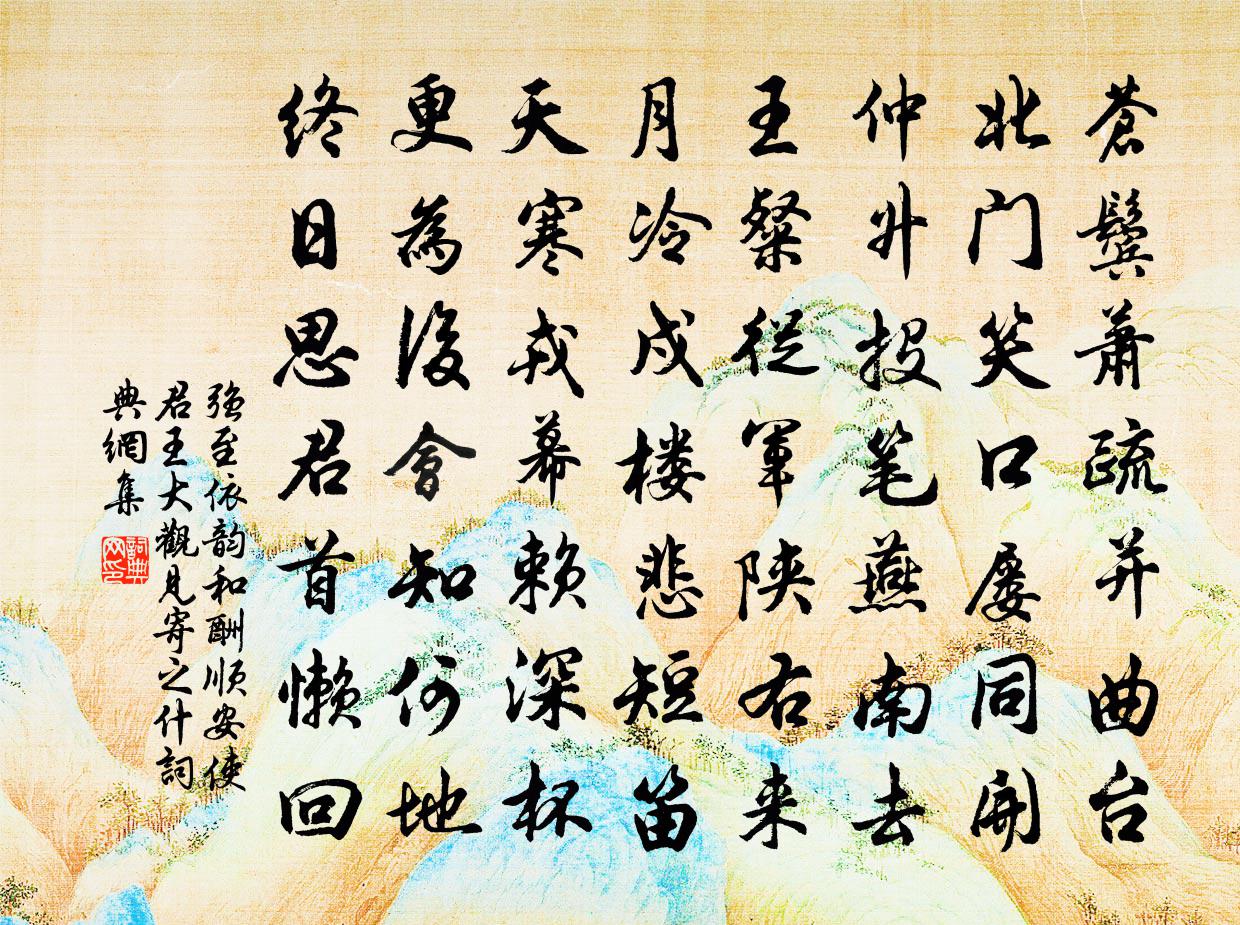 蒼鬢蕭疏并曲台
北门笑口屡同開
仲升投笔燕南去
王粲從軍陕右来
月冷戍楼悲短笛
天寒戎幕赖深杯
更為後會知何地
终日思君首懒回
強至依韵和酬顺安使
君王大觀見寄之什詞
典網集
詞典网印